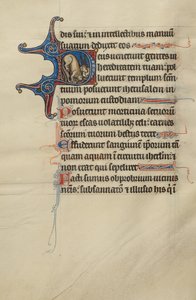 dis sui: ⁊ in intellectibus manuum
suarum deduxit eos
Deus uenerunt gentes in
hereditatem tuam: pol
luerunt templum sanctum
tuum posuerunt iherusalem in
pomorum custodiam
Posuerunt morticina seruorum
tuorum escas uolatilibus celi: carnes
sanctorum tuorum bestiis terre
Effuderunt sanguinem ipsorum tam
quam aquam in circuitu iherusalem: ⁊
non erat qui sepeliret
Facti sumus obprobrium uicinis
nostris: subsannatio ⁊ illusio his qui